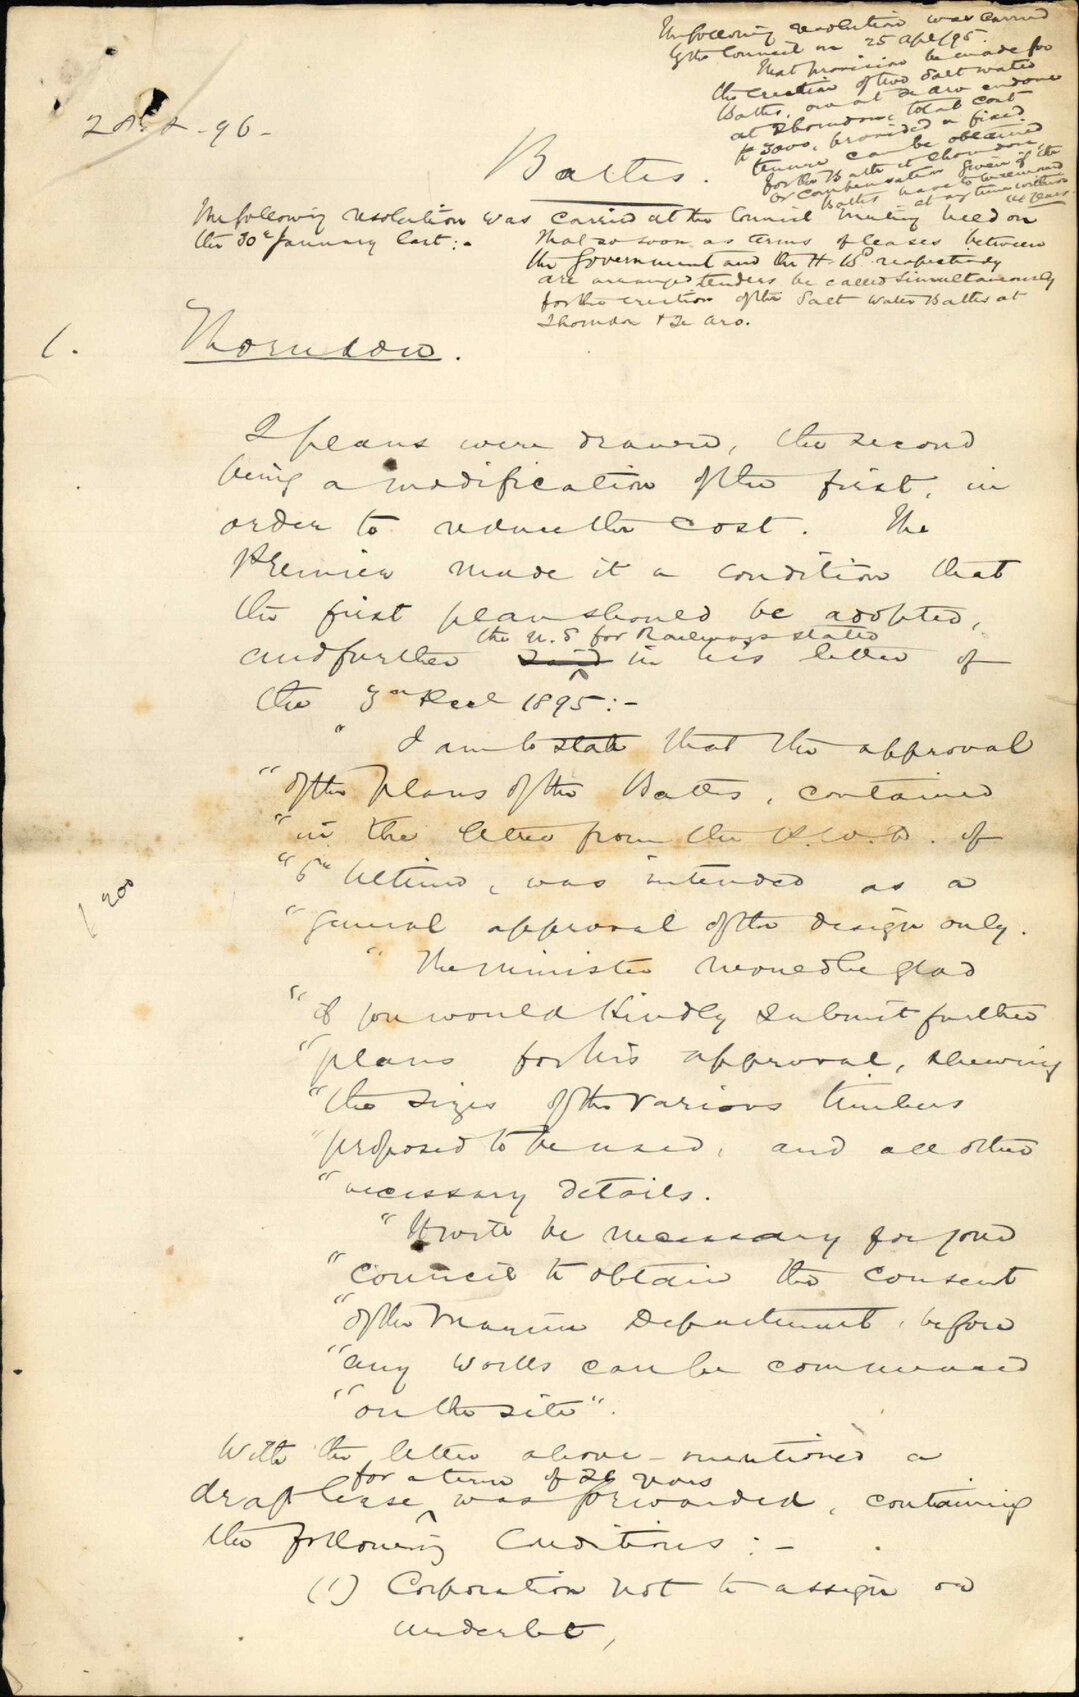 The following resolution was carried
by the Council on 25 Apl/95.
That provision be made for
the erection of two Salt water
Baths, one at Te Aro and one
at Thorndon, total cost
£3000, provided a fixed
tenure can be obtained
for the Bath at Thorndon,
or compensation given if the
Baths have to be removed
at any time within
14 years.
-96-
Baths.
The following resolution was carried at the Council Meeting held on
the 30th January last:-
That so soon as terms of leases between
the Government and the H. B. respectively
are arranged tenders be called simultaneously
for the erection of the Salt Water Baths at
Thorndon & Te Aro.
1. Thorndon.
2 plans were drawn, the second
being a modification of the first, in
order to reduce the cost. The
Premier made it a condition that
the first plan should be adopted,
the U.S for Railways stated
and further said in his letter of
the 3rd Decr 1895:-
" I am to state that the approval
"of the plans of the Baths, contained
"in the letter from the P.W.D. of
"6th Ultimo, was intended as a
"general approval of the design only.
" The Minister would be glad
"if you would kindly submit further
"plans for his approval, shewing
"the sizes of the various timbers
"proposed to be used, and all other
"necessary details.
"It will be necessary for your
"Council to obtain the consent
"of the Marine Department, before
"any works can be commenced
"on the site".
200
With the letter above-mentioned a
for a term of years
draft lease was forwarded, containing
the following Conditions:-
(1) Corporation not to assign or
underlet,